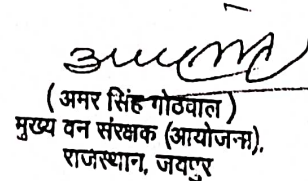 ( अमर सिंह गोठवाल )
मुख्य वन संरक्षक (आयोजना),
राजस्थान, जयपुर